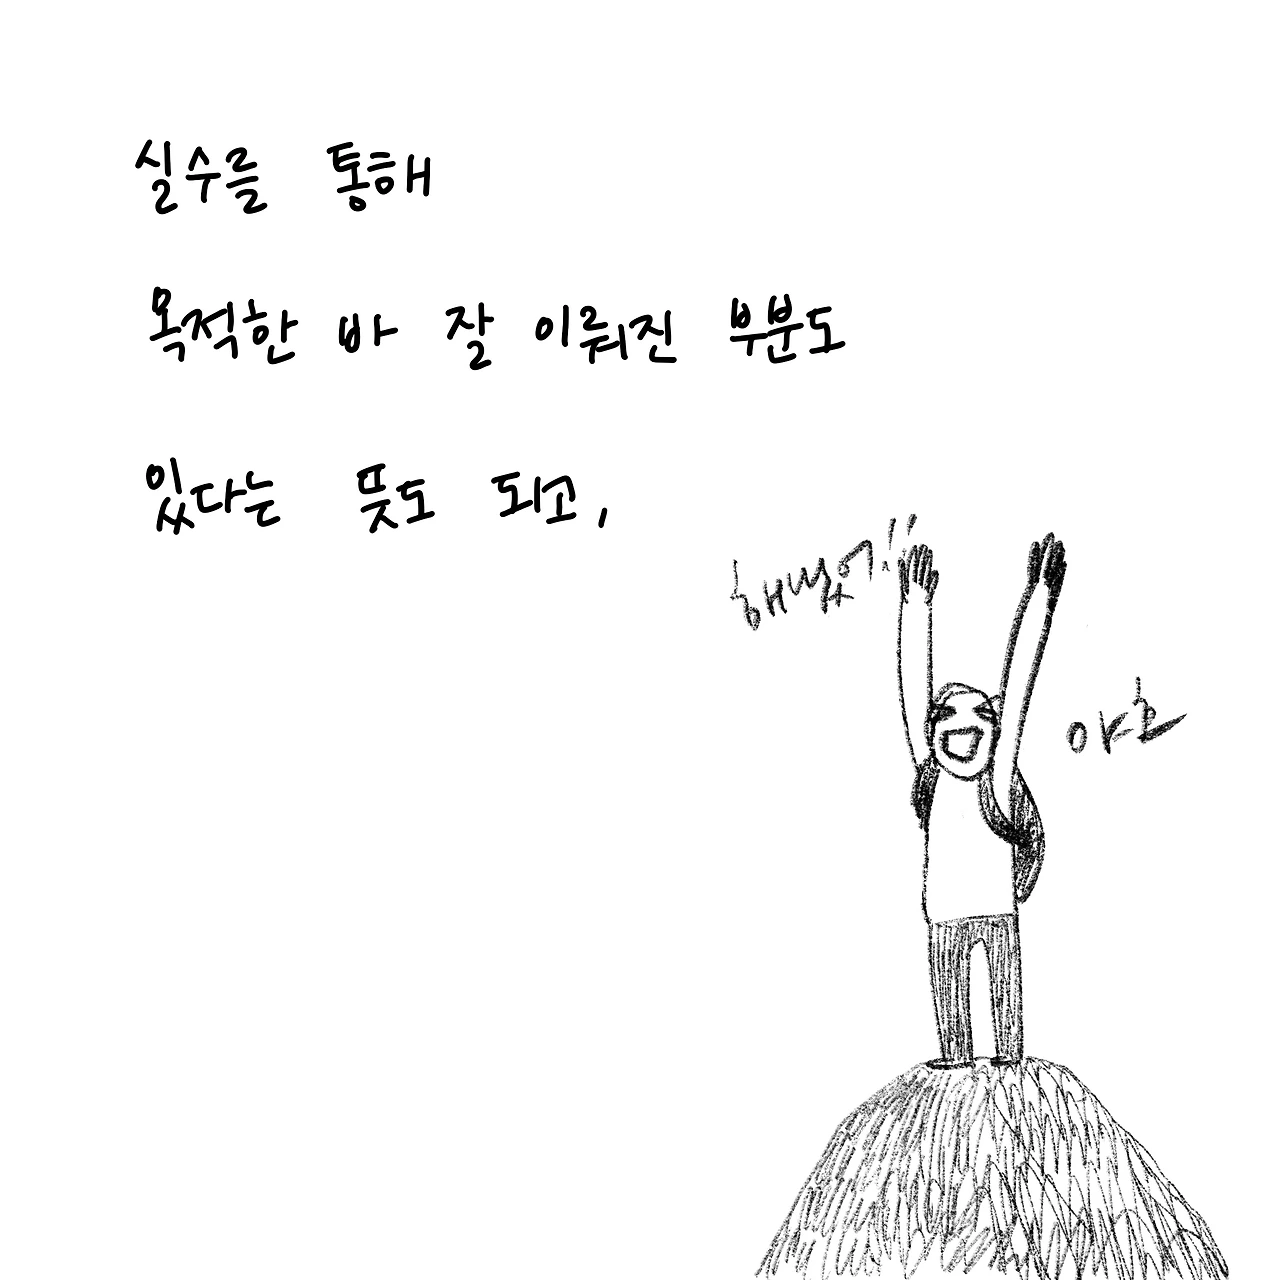 실수를 통해
목적한 바 잘 이뤄진 부분도
있다는 뜻도 되고,
해냈어!!
야호